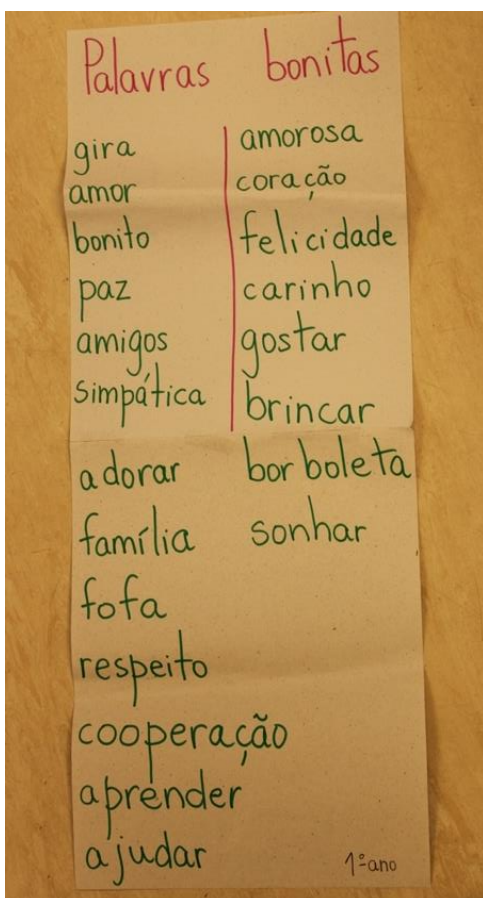 Palavras bonitas
gira
amor
bonito
paz
amigos
simpática
adorar
família
fofa
respeito
cooperação
aprender
ajudar
amorosa
coração
felicidade
carinho
gostar
brincar
borboleta
sonhar
1º ano